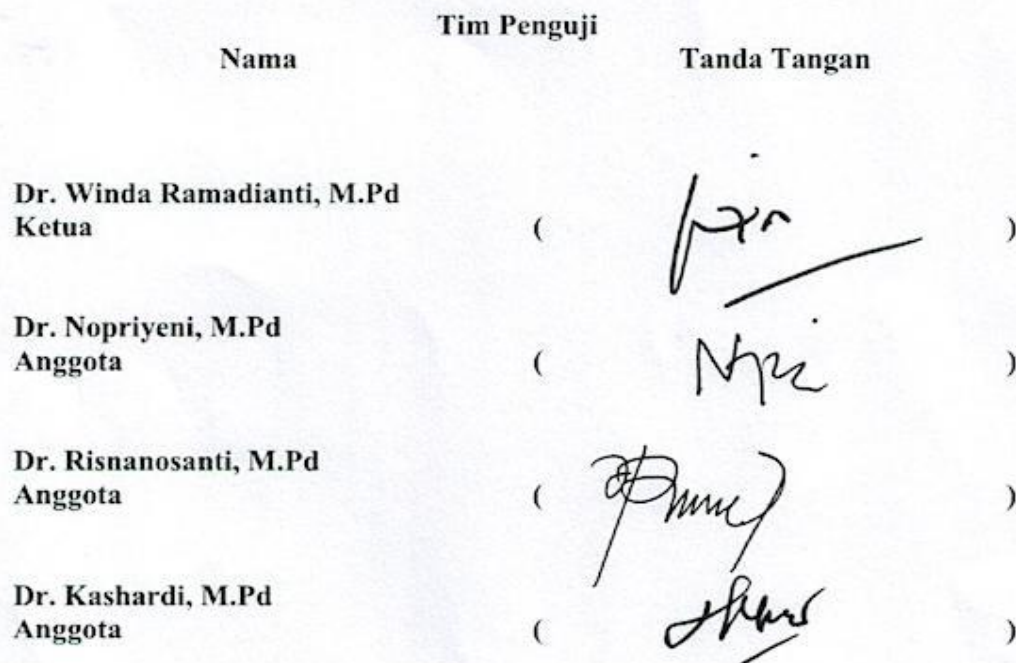 Tim Penguji
Nama Tanda Tangan
Dr. Winda Ramadianti, M.Pd
Ketua ( )
Dr. Nopriyeni, M.Pd
Anggota ( )
Dr. Risnanosanti, M.Pd
Anggota ( )
Dr. Kashardi, M.Pd
Anggota ( )